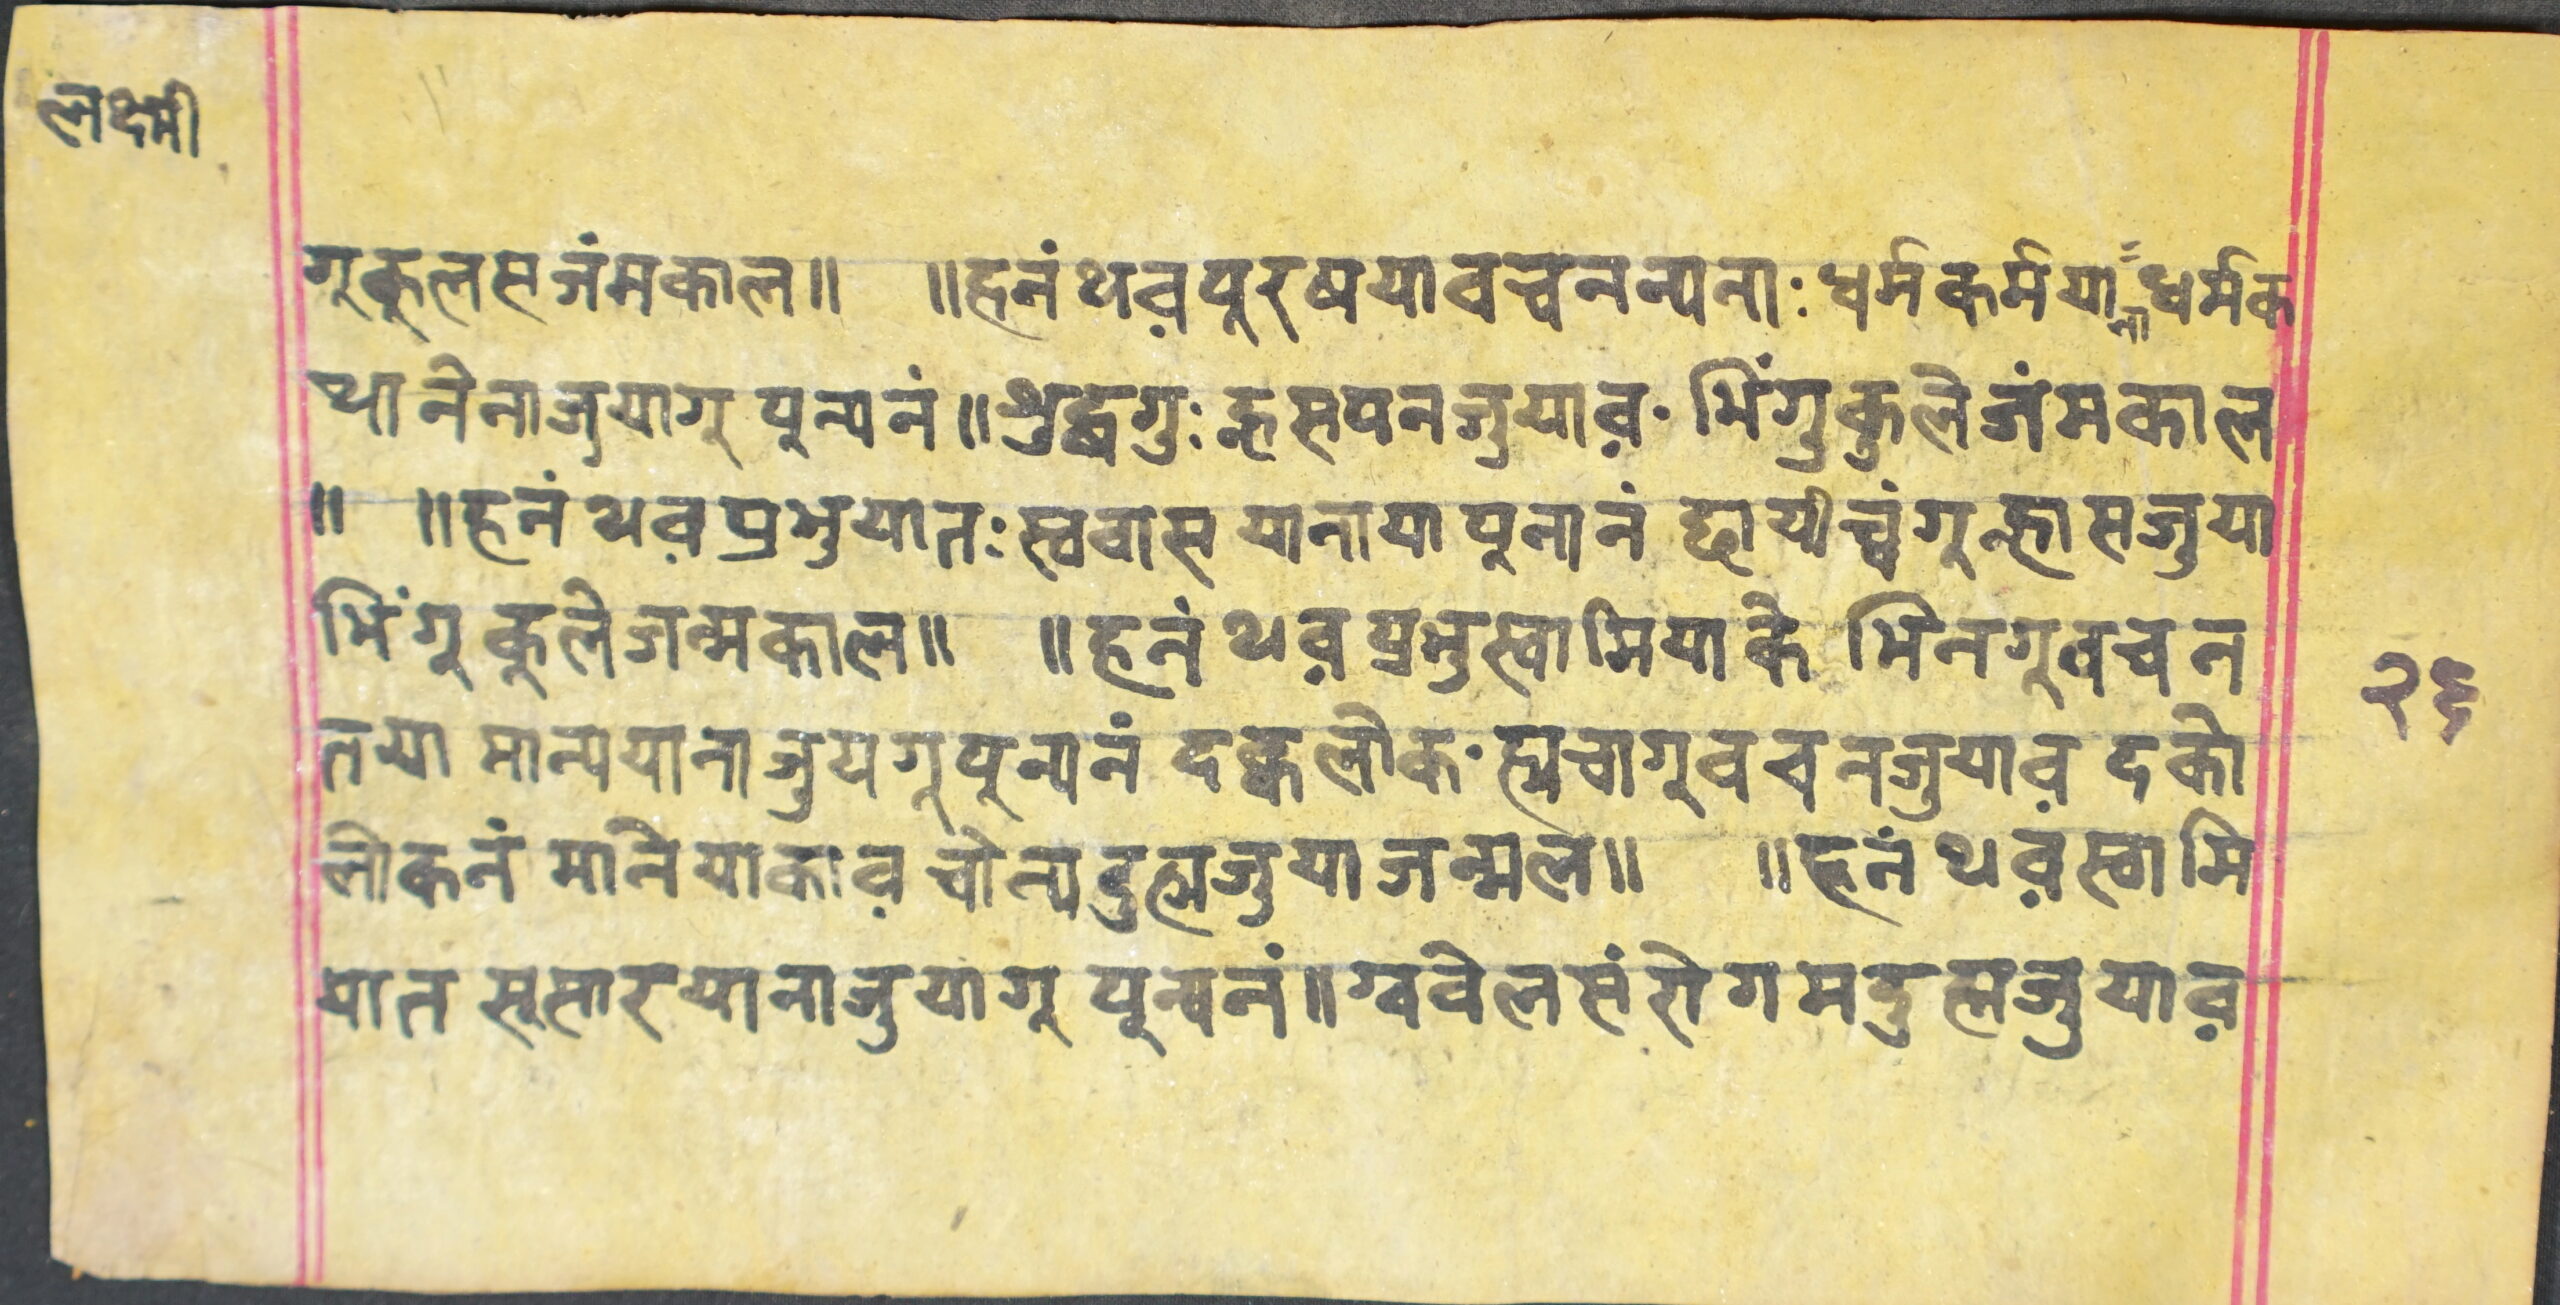 लक्ष्मी
गूकूलस जंमकाल॥ ॥हनं थव़पूरषयावचनन्यना: धर्मकर्मयाना धर्मक
थानेनाजुयागू पून्यनं॥शुद्धगु: ह्नसपनजुयाव़· भिंगुकुले जंमकाल
॥ ॥हनं थव़प्रभुयात: स्ववास यानाया पूनानं ह्वायीच्वंगू ह्लासजुया
भिंगूकूले जन्मकाल॥ ॥हनं थव़प्रभुस्वामियाके भिनगूवचन
तया मान्ययानाजुयगूपून्यनं दक्वलोक· ह्यचागूवचनजुयाव़ दको
लोकनं मानेयाकाव़ चोन्यदुह्मजुया जन्मल॥ ॥हनं थव़स्वामि
यात सूसारयानाजुयागू पून्यनं॥ग्ववेलसं रोगमदुह्मजुयाव़
२६